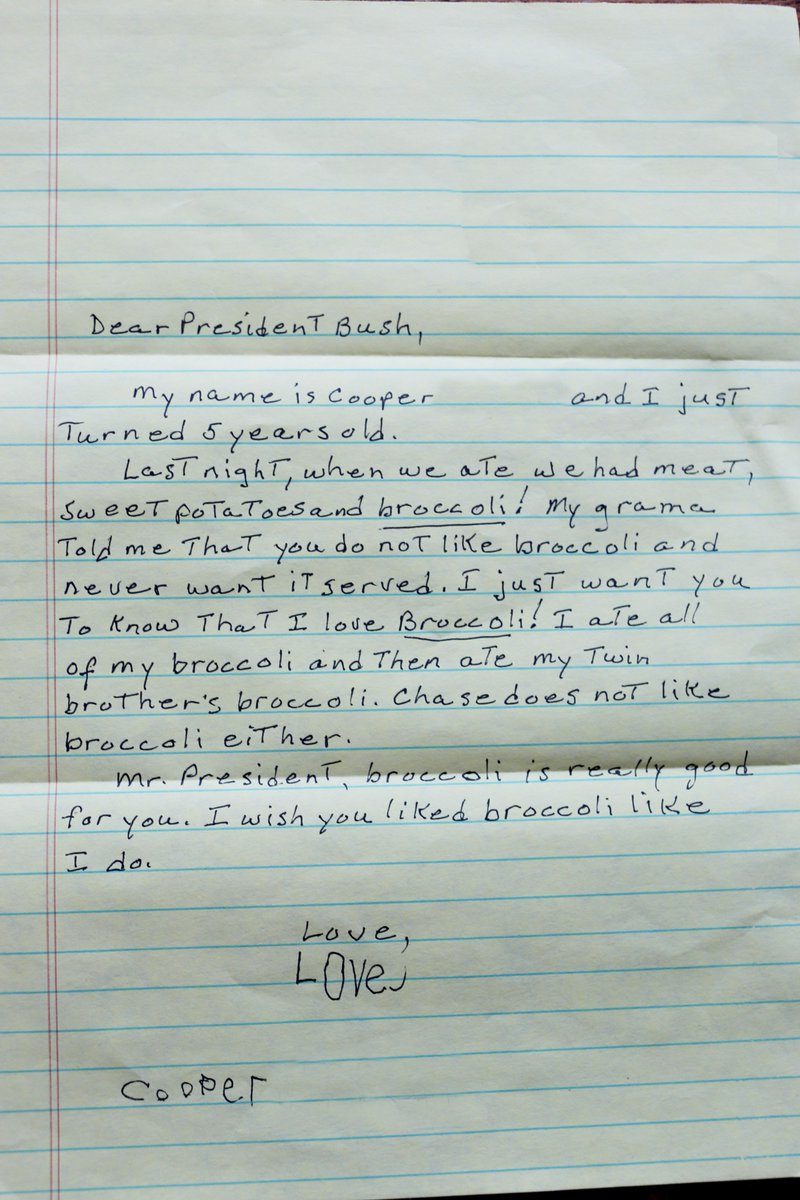 Dear President Bush,
My name is Cooper and I just
Turned 5 years old.
Last night, when we ate we had meat,
sweet potatoes and broccoli! My grama
Told me That you do not like broccoli and
never want it served. I just want you
To know That I love Broccoli! I ate all
of my broccoli and Then ate my Twin
brother's broccoli. Chase does not like
broccoli either.
Mr. President, broccoli is really good
for you. I wish you liked broccoli like
I do.
Love,
LOve,
Cooper